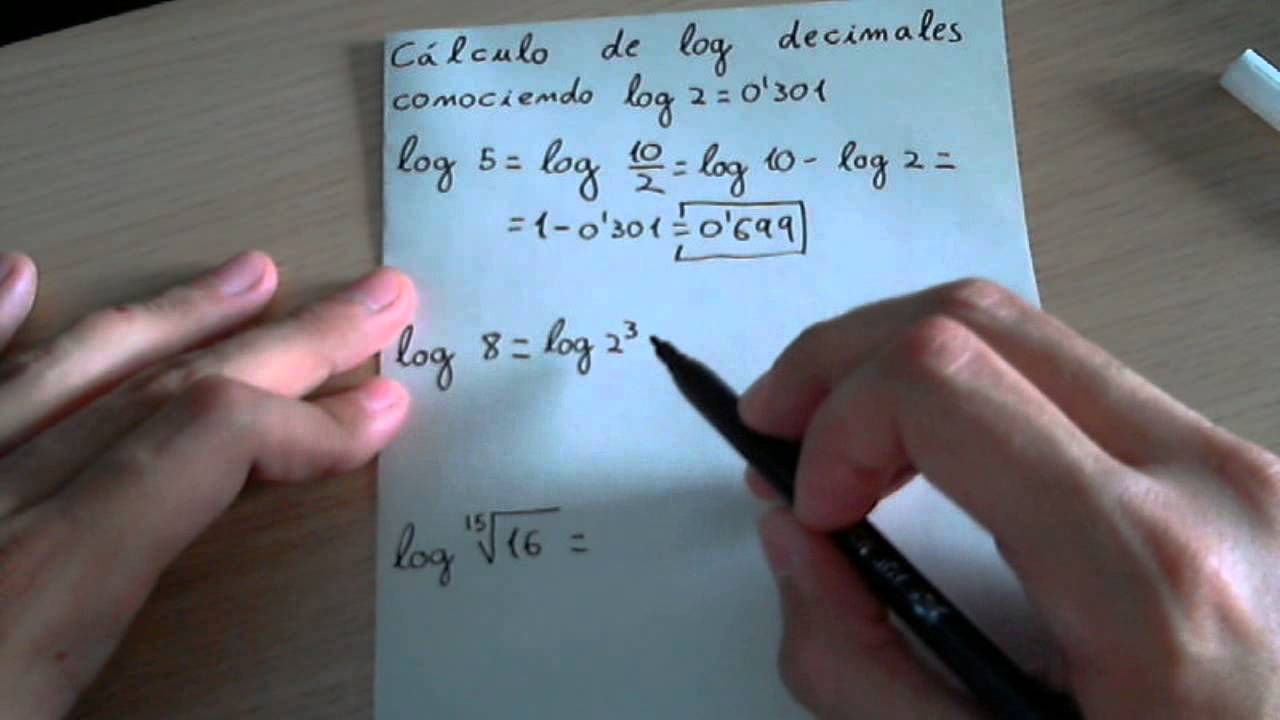 Cálculo de log decimales
conociendo log 2 = 0'301
log 5 = log 10/2 = log 10 - log 2 =
= 1 - 0'301 = 0'699
log 8 = log 2³
log ¹⁵√16 =